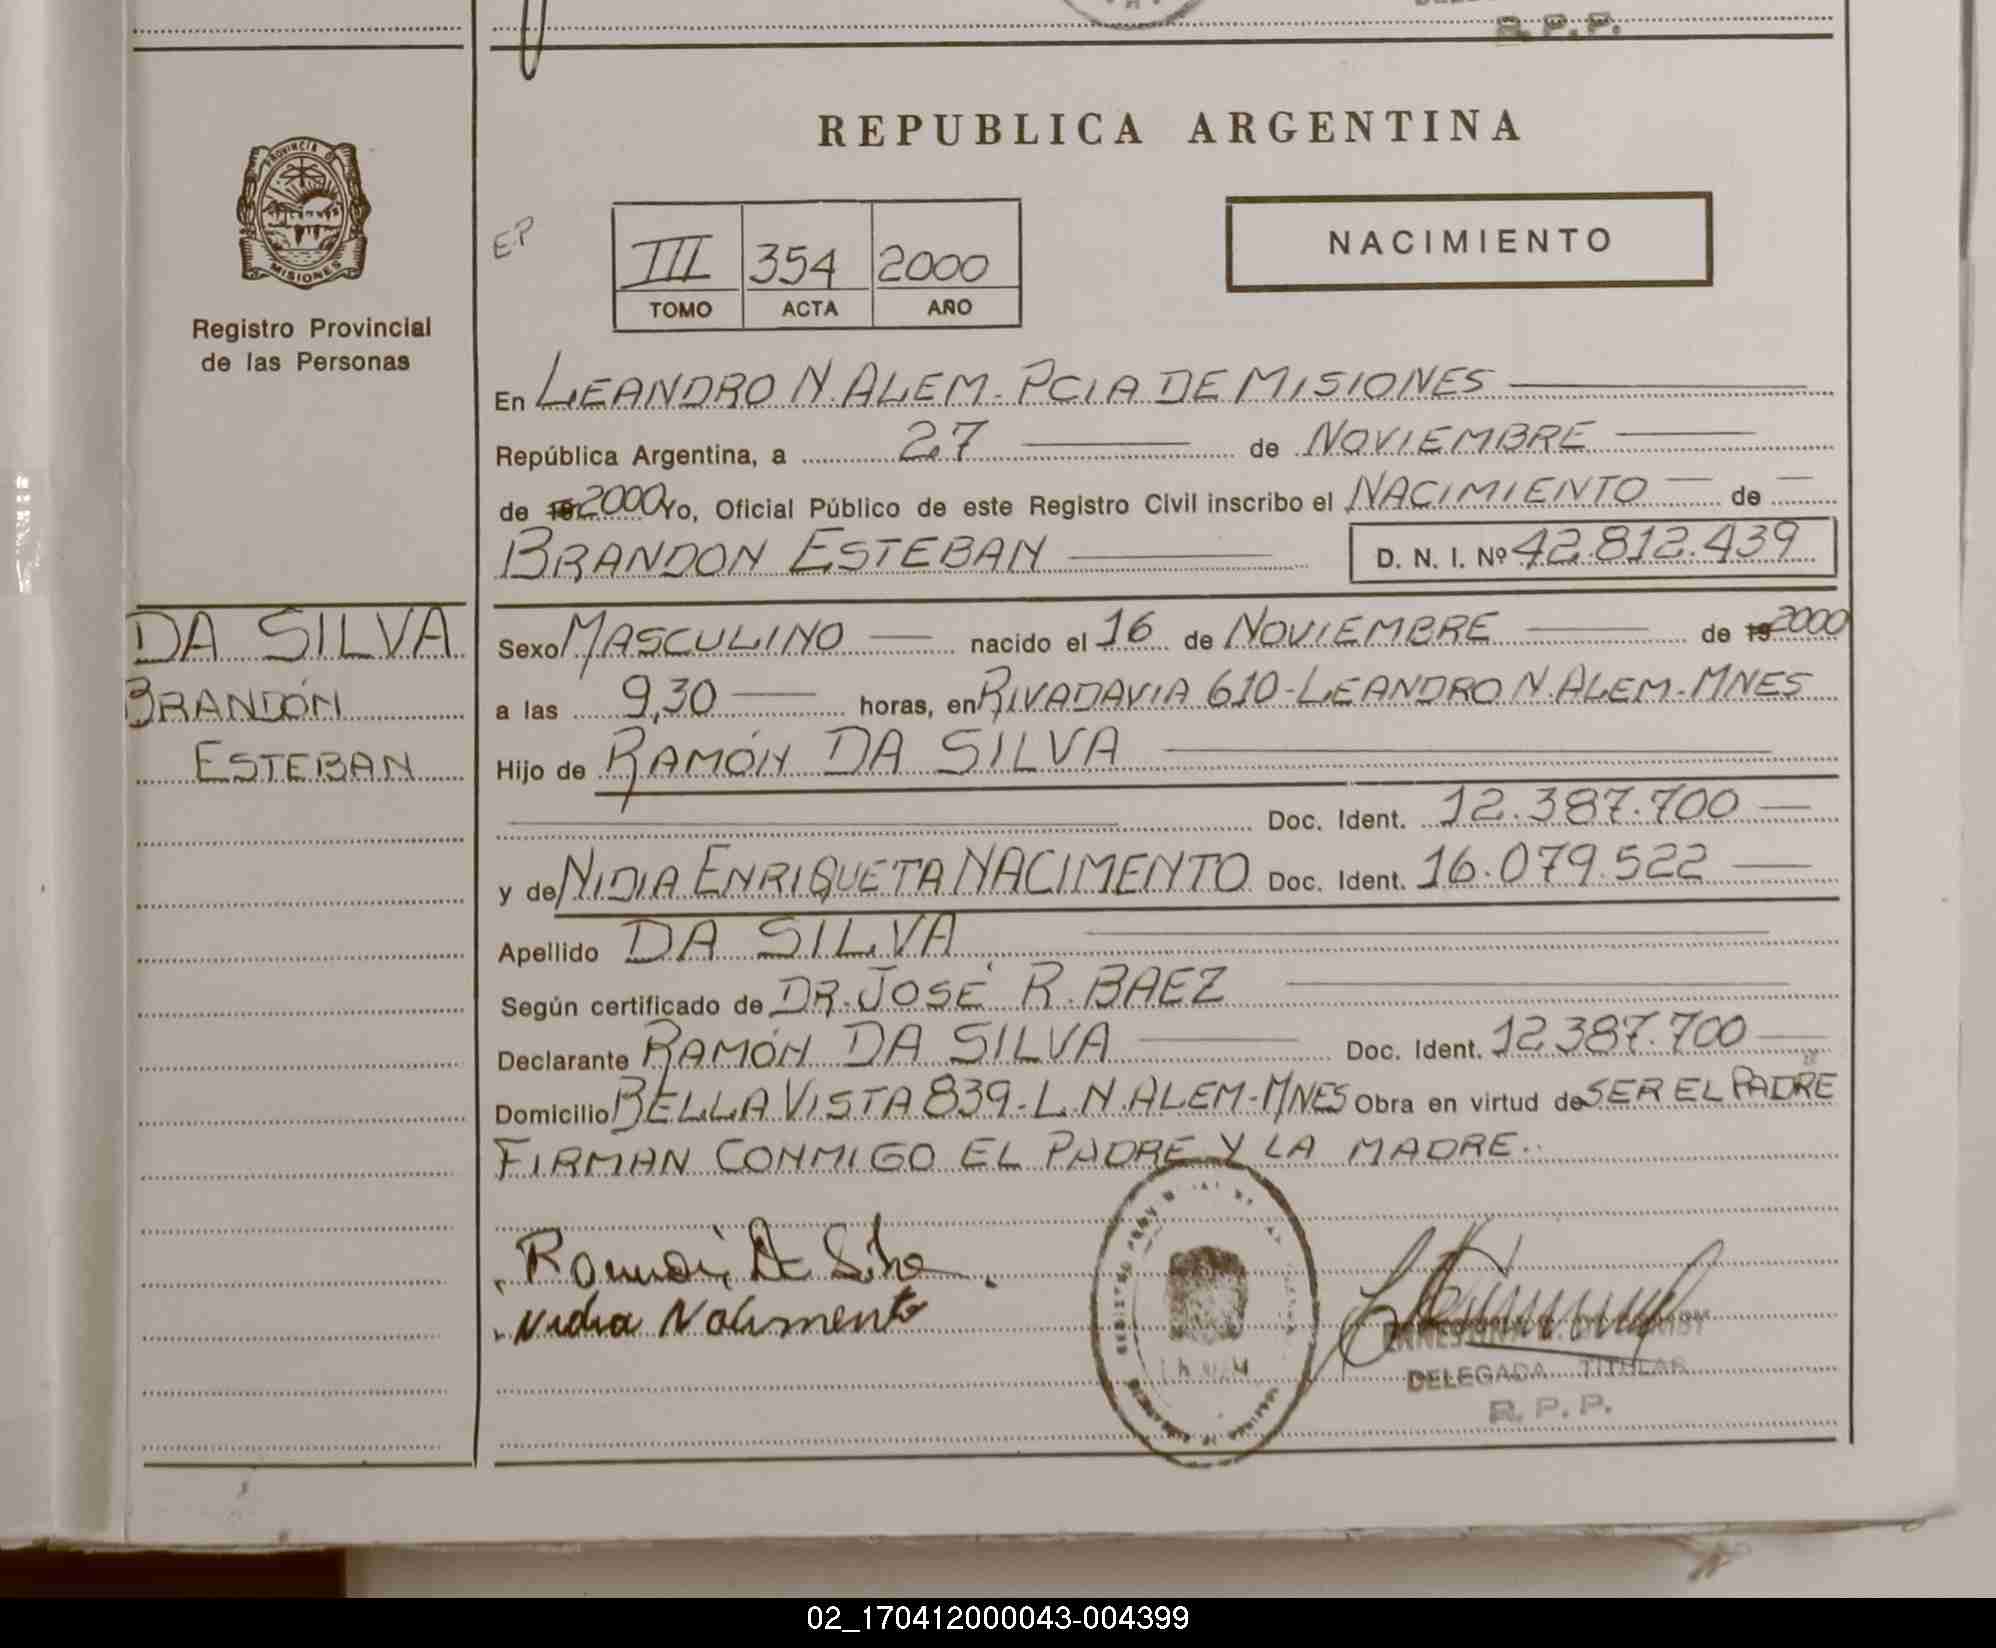 R. P. P.
REPUBLICA ARGENTINA
PROVINCIA DE
MISIONES
Registro Provincial
de las Personas
E.P
III 354 2000
TOMO ACTA AÑO
NACIMIENTO
En LEANDRO N. ALEM - PCIA DE MISIONES
República Argentina, a 27 de NOVIEMBRE
de 19 2000 Yo, Oficial Público de este Registro Civil inscribo el NACIMIENTO de
BRANDON ESTEBAN D. N. I. Nº 42.812.439
DA SILVA
BRANDÓN
ESTEBAN
Sexo MASCULINO nacido el 16 de NOVIEMBRE de 19 2000
a las 9,30 horas, en RIVADAVIA 610 - LEANDRO N. ALEM - MNES
Hijo de RAMÓN DA SILVA
Doc. Ident. 12.387.700
y de NIDIA ENRIQUETA NACIMENTO Doc. Ident. 16.079.522
Apellido DA SILVA
Según certificado de DR. JOSÉ R. BAEZ
Declarante RAMÓN DA SILVA Doc. Ident. 12.387.700
Domicilio BELLA VISTA 839 - L. N. ALEM - MNES Obra en virtud de SER EL PADRE
FIRMAN CONMIGO EL PADRE Y LA MADRE.
Ramón Da Silva
Nidia Nacimento
DELEGADA TITULAR
R. P. P.
02_170412000043-004399